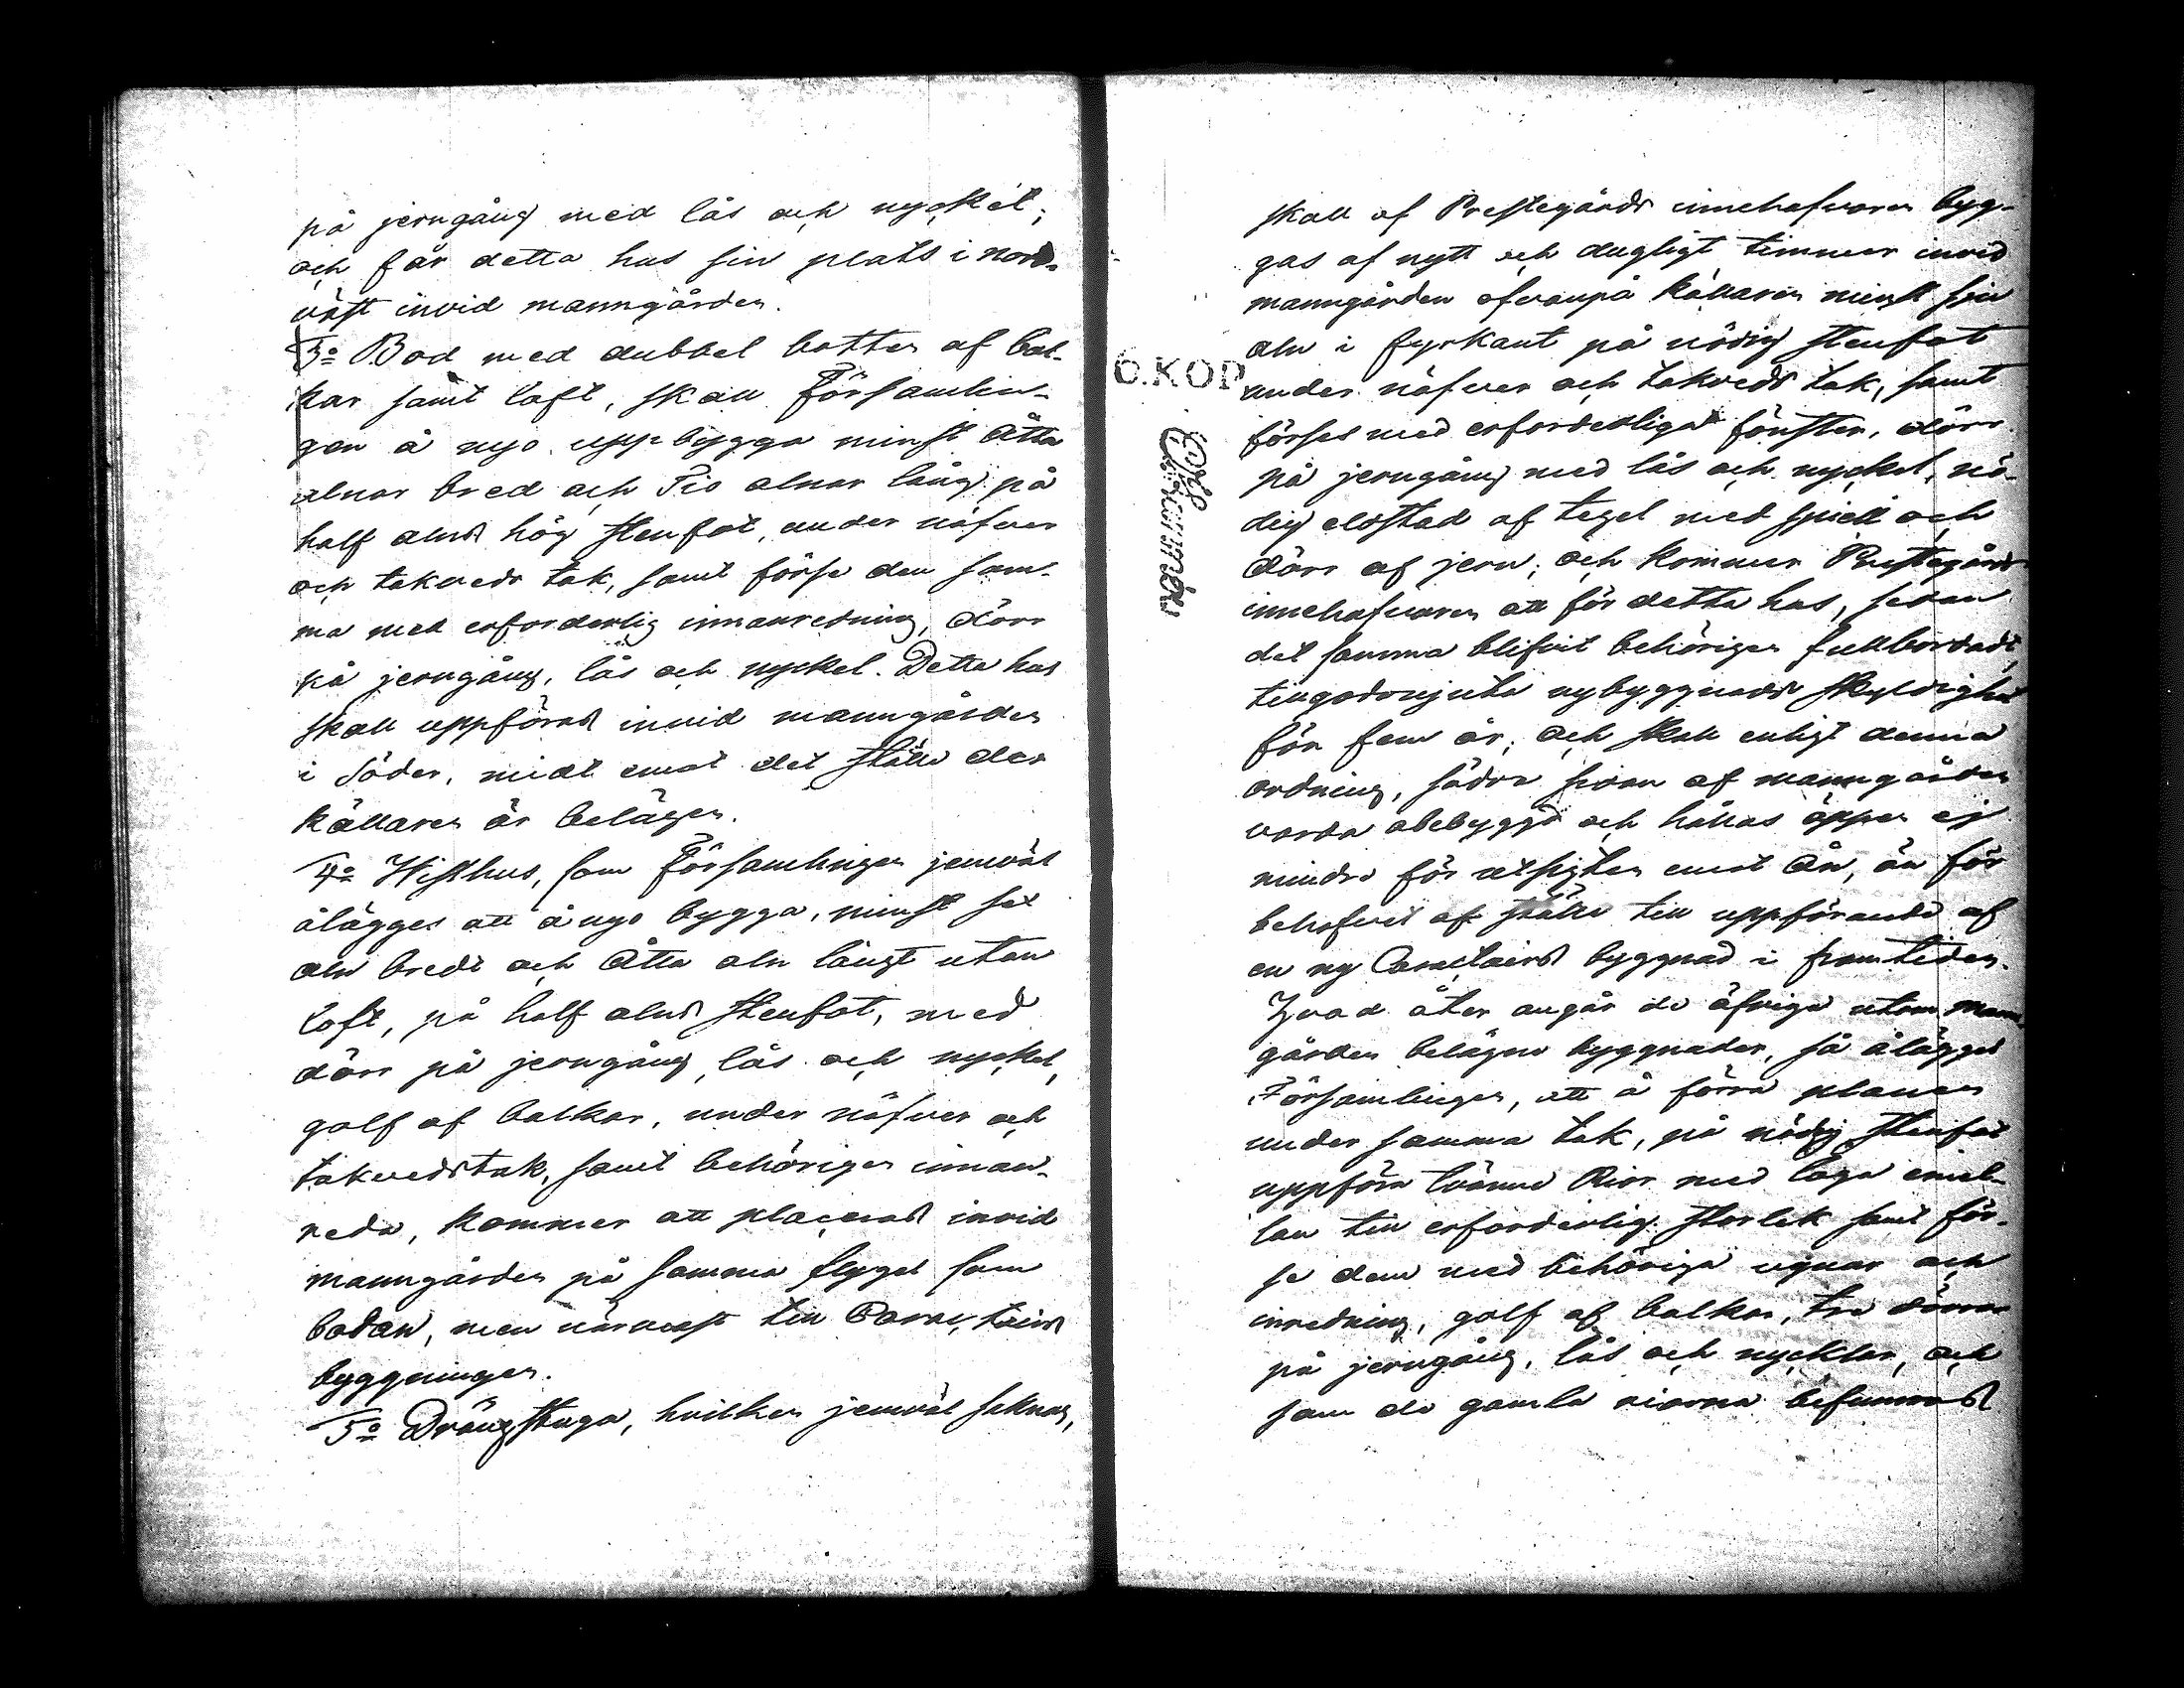 på jerngång med lås och nyckel;
och får detta hus sin plats i nord-
väst invid manngården.
3o Bod med dubbel botten af bal-
kar samt loft, skall Församlin-
gen å nyo uppbygga minst Åtta
alnar bred och Tio alnar lång på
half alns hög stenfot, under näfver
och takveds tak, samt förse den sam-
ma med erforderlig innanredning, dörr
på jerngång, lås och nyckel. Detta hus
skall uppföras invid manngården
i Söder, midt emot det ställe der
källaren är belägen.
4o Wisthus, som Församlingen jemväl
ålägges att å nyo bygga, minst sex
aln bredt och Åtta aln långt utan
loft, på half alns stenfot, med
dörr på jerngång, lås och nyckel,
golf af balkar, under näfver och
takvedstak, samt behörigen innan-
reda, kommer att placeras invid
manngården på samma flygel som
bodan, men närmast till
byggningen.
5o Drängstuga, hvilken jemväl saknas,
skall af Prestegårds innehafvaren byg-
gas af nytt och dugligt timmer invid
manngården ofvanpå källaren minst sju
aln i fyrkant på nödig stenfot
under näfver och takveds tak, samt
förses med erforderliga fönster, dörr
på jerngång med lås och nyckel, nö-
dig eldstad af tegel med spiell och
dörr af jern; och kommer Prestegårds
innehafvaren att för detta hus, sedan
det samma blifvit behörigen fullbordadt,
tillgodonjuta nybyggnads skyldighet
för fem år; och skall enligt denna
ordning, södra sidan af manngården
varda obebyggd och hållas öppen ej
mindre för utsigten emot Ån, än för
behofvet af ställe till uppförande af
en ny byggnad i framtiden.
Hvad åter angår de öfriga utom mann-
gården belägne byggnader, så ålägges
Församlingen, att å förra planen
under samma tak, på nödig stenfot
uppföra tvänne Rior med loga emel-
lan till erforderlig storlek samt för-
se dem med behöriga ugnar och
inredning, golf af balkar, tre dörrar
på jerngång, lås och nycklar, och
som de gamla riorna befunnos
6.KOP